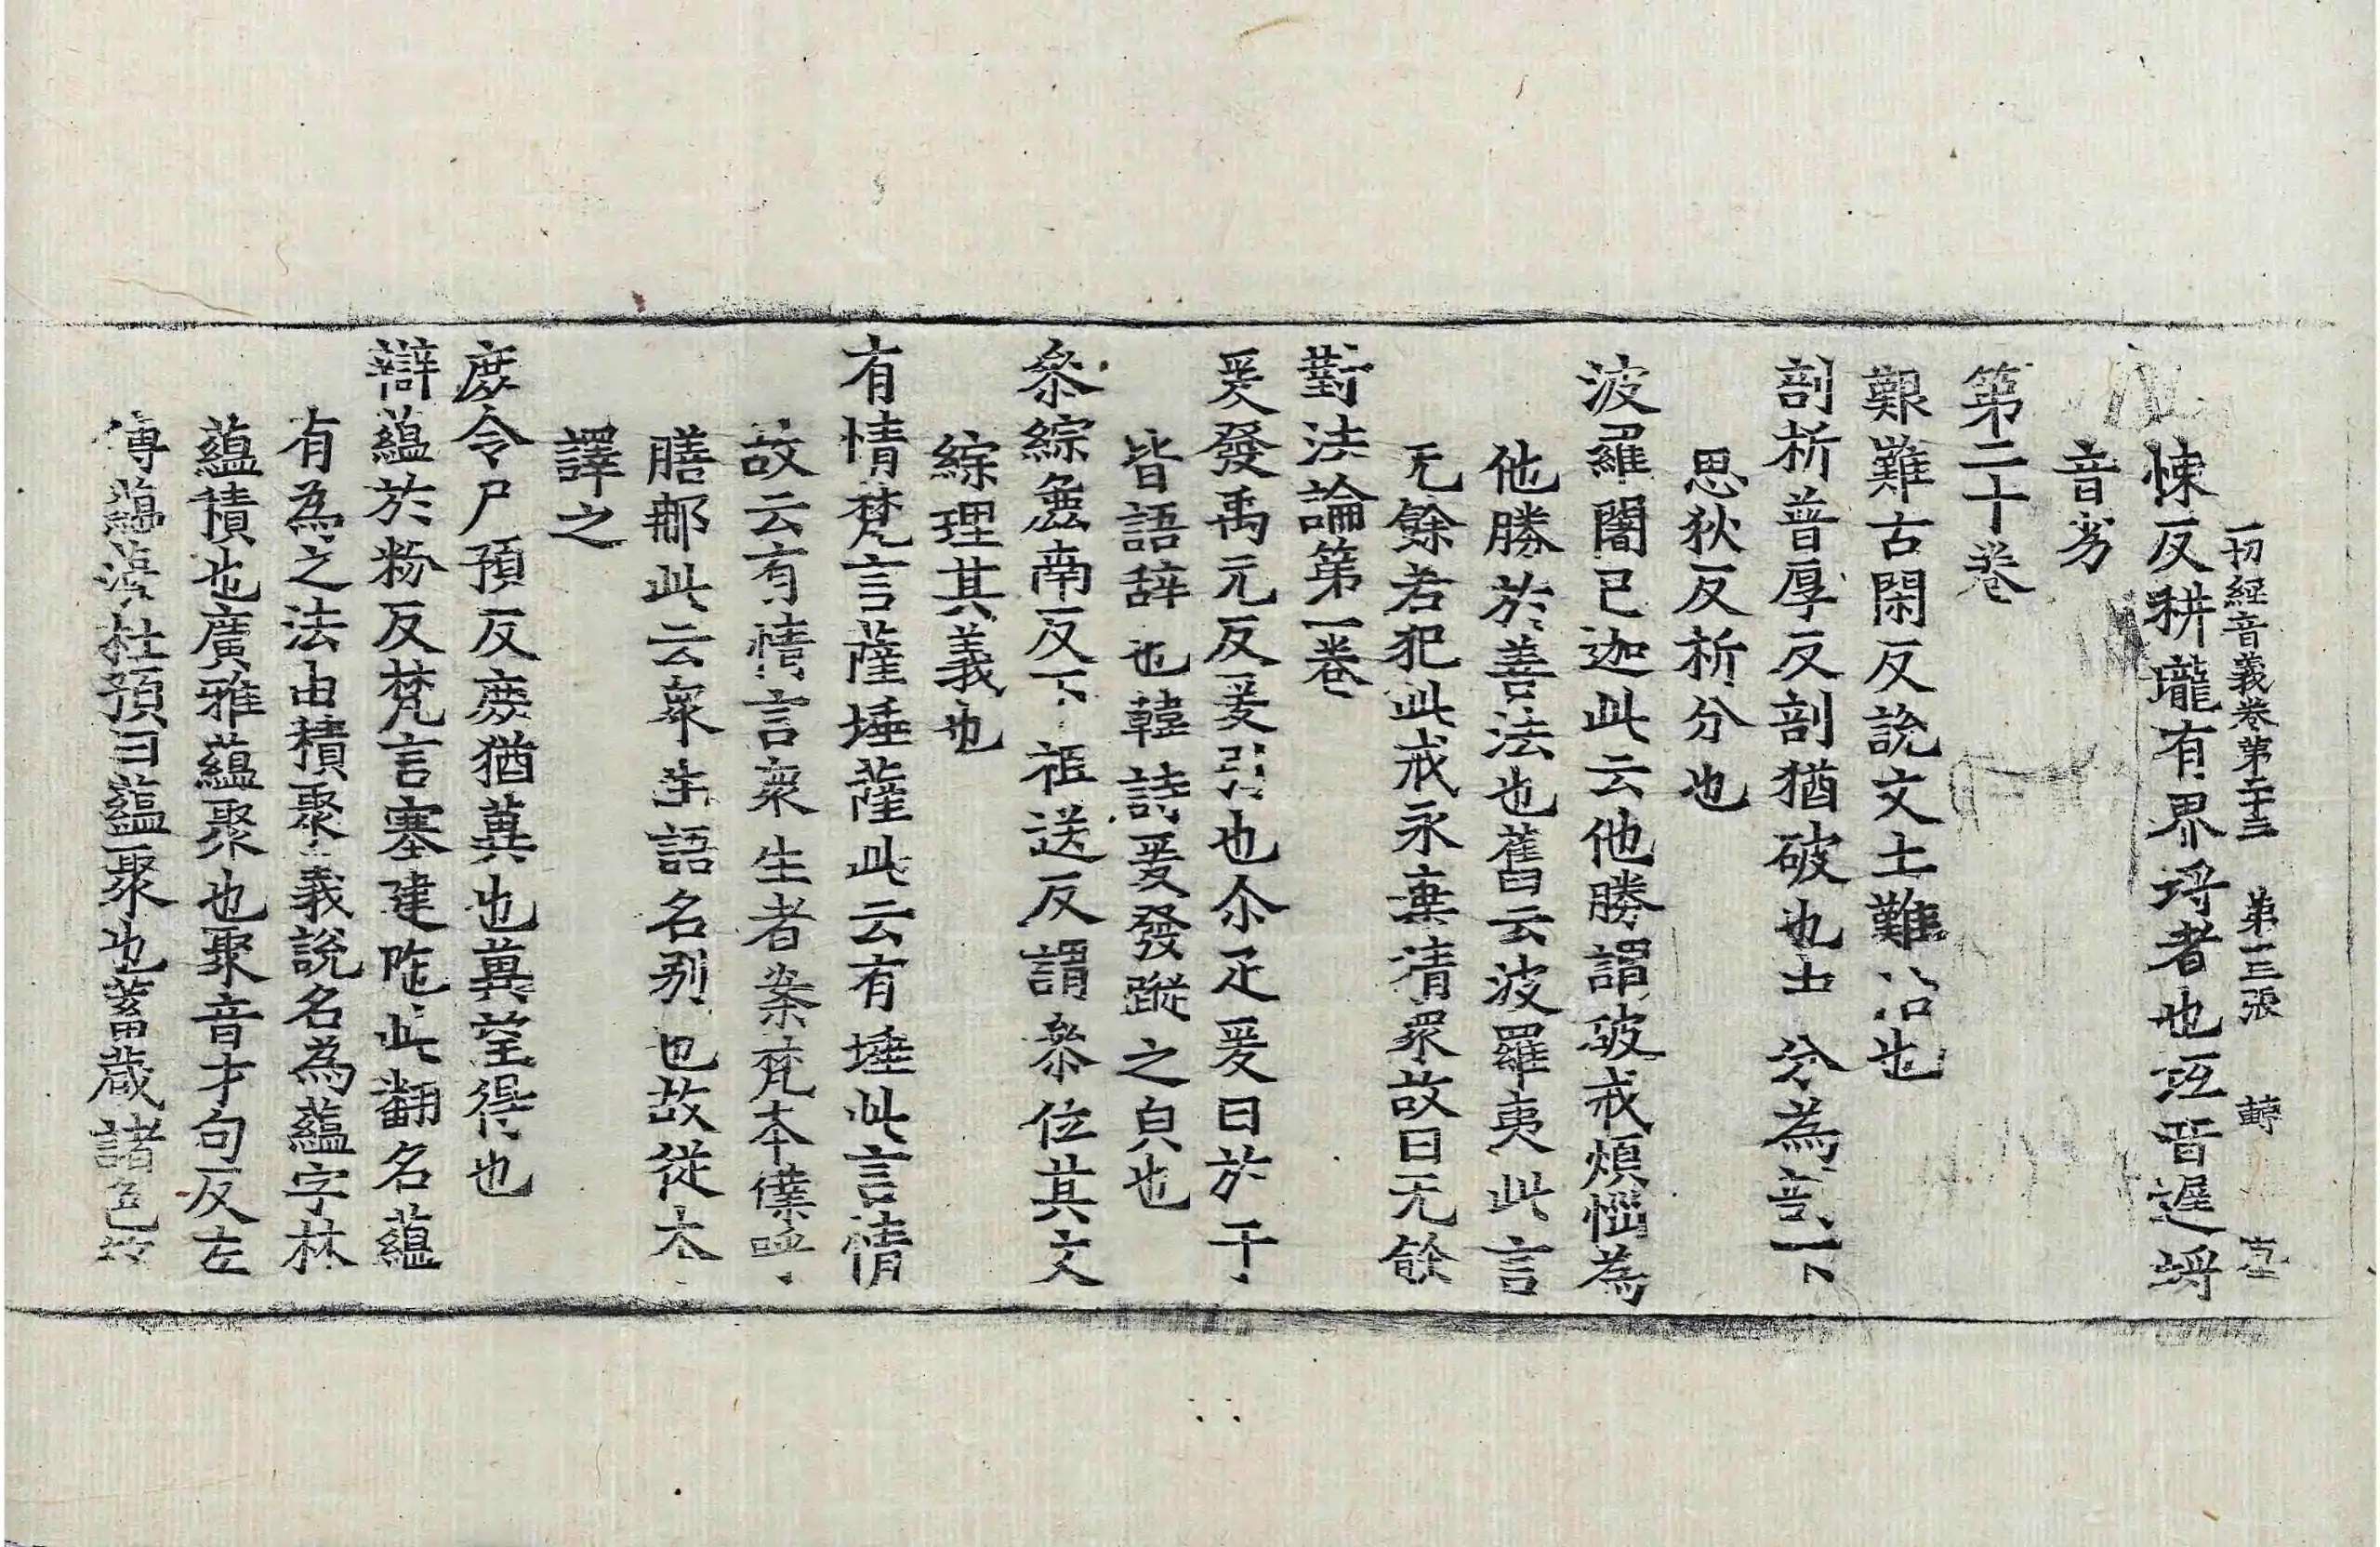 一切經音義卷第二十三 第十三張 轉
悚反耕壠有界埒者也㲼音遲埒
音劣
第二十卷
艱難古閑反說文土難治也
剖析普厚反剖猶破也中分為剖下
思狄反析分也
波羅闍已迦此云他勝謂破戒煩惱為
他勝於善法也舊云波羅夷此言
无餘若犯此戒永棄清眾故曰无餘
對法論第一卷
爰發禹元反爰引也尒疋爰曰於于
皆語辝也韓詩爰發蹤之皃也
叅綜麁南反下祖送反謂叅位其文
綜理其義也
有情梵言薩埵薩此云有埵此言情
故云有情言衆生者案梵本僕呼
膳那此云衆生語名別也故從本
譯之
庶令尸預反庶猶兾也兾望得也
辯蘊於粉反梵言塞建陁此翻名蘊
有為之法由積聚義說名為蘊字林
蘊積也廣雅蘊聚也聚音才句反左
傳蘊藻杜預曰蘊聚也蓄蔵諸色故